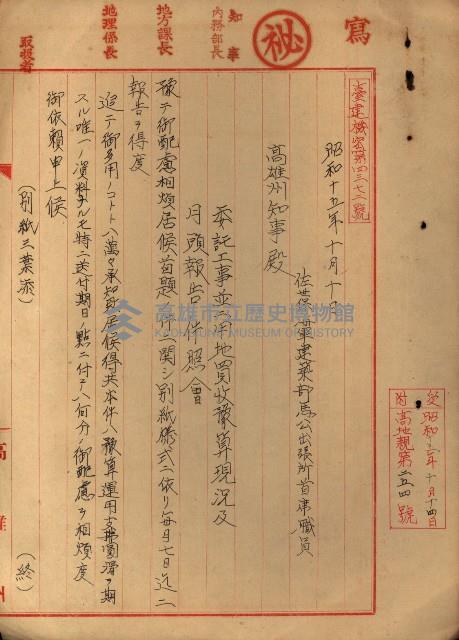 寫
秘
知事
內務部長
地方課長
地理係長
取扱者
臺建機密第四三七二號
昭和十五年十月十日
佐世保海軍建築部馬公出張所首席職員
高雄州知事殿
委託工事並ニ用地買收豫算現況及
月頭報告ノ件照會
豫テ御配慮相煩居候首題ノ件ニ關シ別紙樣式ニ依リ每月七日迄ニ
報告ヲ得度
追テ御多用ノコトト八萬々承知居候得共本件ハ豫算運用支拂圓滑ヲ期
スル唯一ノ資料ナルモ特ニ送付期日ノ點ニ付テハ何分ノ御配慮ヲ相煩度
御依賴申上候
(別紙三葉添)
(終)
受昭和15年十月十四日
附高地親第二五四號
高雄州
高雄市立歷史博物館
KAOHSIUNG MUSEUM OF HISTORY